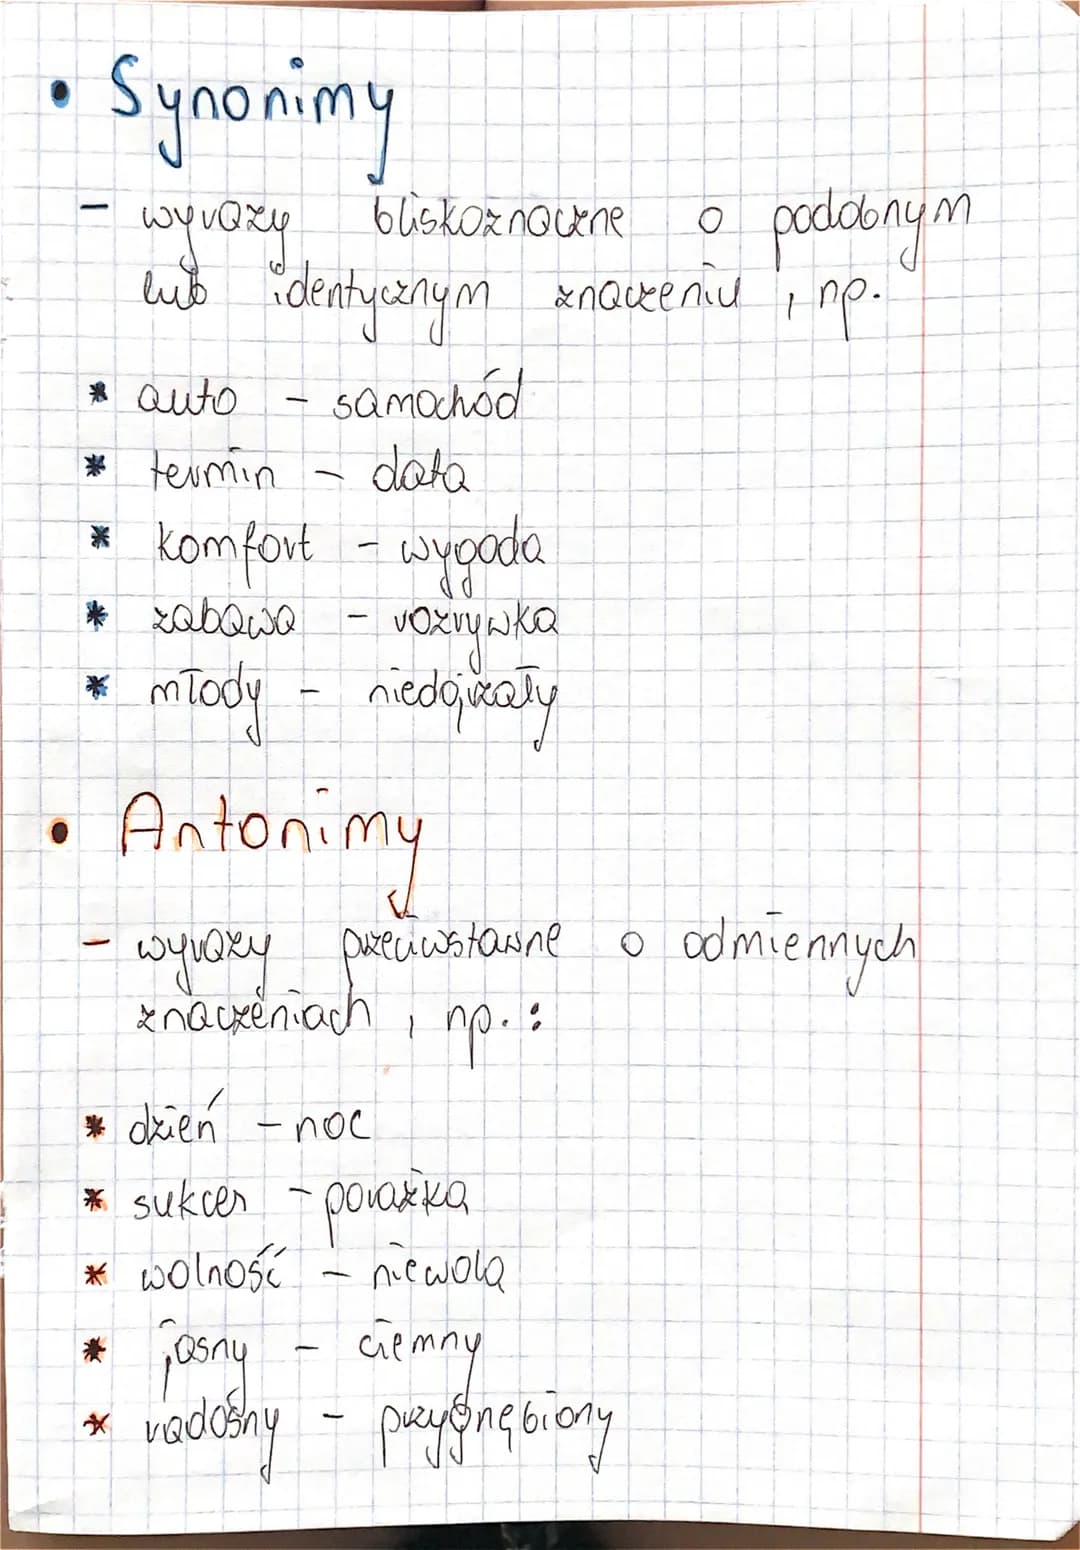 • Synonimy
- wyrazy bliskoznaczne o podobnym
lub identycznym znaczeniu, np.
* auto - samochód
* termin - data
* komfort - wygoda
* zabawa - rozrywka
* młody - niedojrzały
• Antonimy
- wyrazy przeciwstawne o odmiennych
znaczeniach, np.:
* dzień - noc
* sukces - porażka
* wolność - niewola
* jasny - ciemny
* radosny - przygnębiony